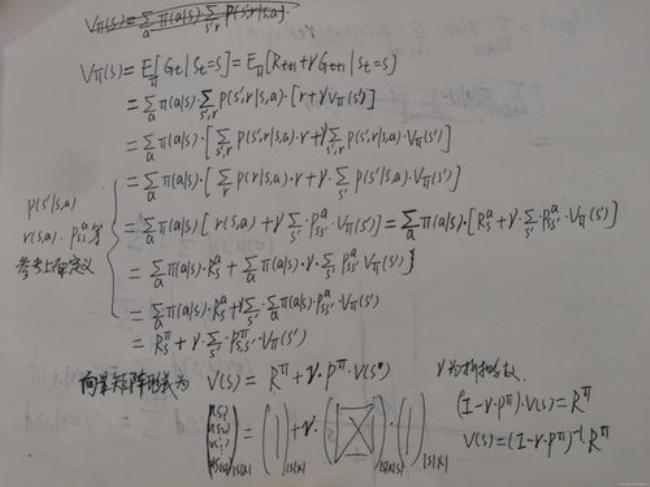 Vπ(s) = Σ_a π(a|s) Σ_{s',r} p(s',r|s,a).
Vπ(s) = E_π[Gt|St=s] = E_π[R_{t+1} + γG_{t+1}|St=s]
= Σ_a π(a|s)·Σ_{s',r} p(s',r|s,a)·[r+γVπ(s')]
= Σ_a π(a|s)·[Σ_{s',r} p(s',r|s,a)·r+γΣ_{s',r} p(s',r|s,a)·Vπ(s')]
= Σ_a π(a|s)·[Σ_r p(r|s,a)·r+γ·Σ_{s'} p(s'|s,a)·Vπ(s')]
p(s'|s,a)
r(s,a)·P^a_{ss'}等
参考上面定义
= Σ_a π(a|s)[r(s,a) + γΣ_{s'}·P^a_{ss'}·Vπ(s')] = Σ_a π(a|s)·[R^a_s + γ·Σ_{s'} P^a_{ss'}·Vπ(s')]
= Σ_a π(a|s)·R^a_s + Σ_a π(a|s)·γ·Σ_{s'} P^a_{ss'} Vπ(s')}
= Σ_a π(a|s)·R^a_s + γΣ_{s'}·Σ_a π(a|s)·P^a_{ss'}·Vπ(s')
= R^π_s + γ·Σ_{s'} P^π_{ss'}·Vπ(s')
向量矩阵形式为 V(s) = R^π + γ·P^π·V(s')
γ为折扣
(I-γ·P^π)·V(s) = R^π
V(s) = (I-γ·P^π)^{-1}·R^π
= ( | ) + γ·( )·( | )_{|S|×1}